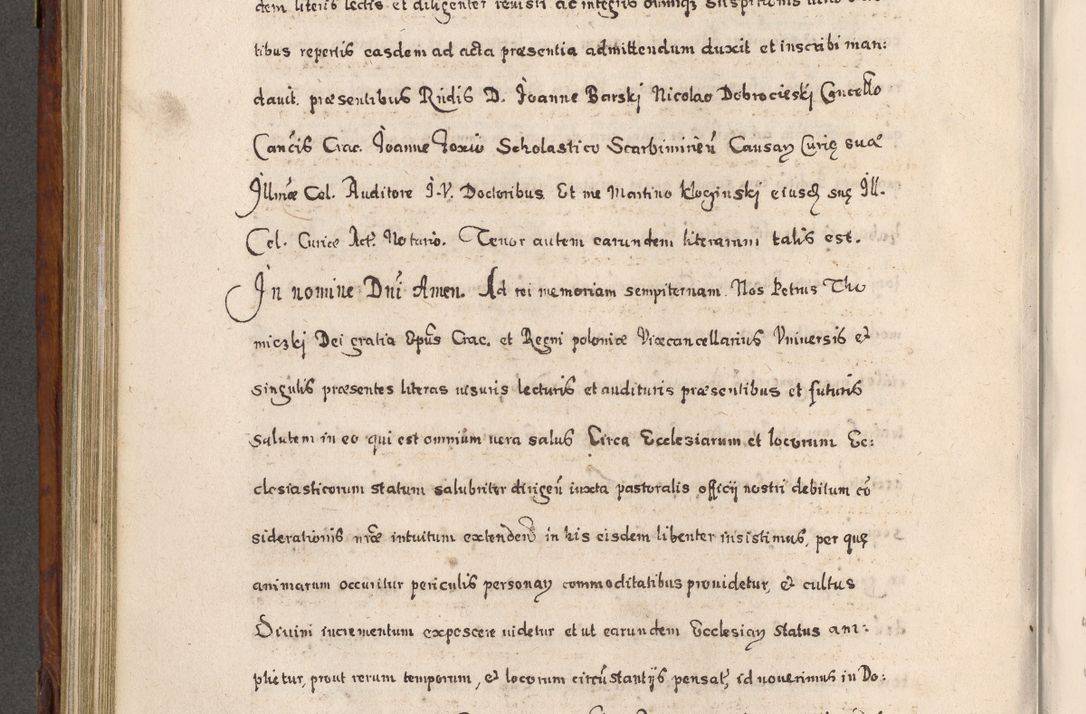 dem literis lectis et diligenter revisis ac integris omniq; suspitionis
tibus repertis easdem ad acta præsentia admittendum duxit et inscribi man:
davit. præsentibus Rndis D. Joanne Barski Nicolao Dobrocieskj Concello
Canćis Crac. Joanne Foxio Scholastico Scarbimireñ Causaꝝ Curię suæ
Illmæ Cel. Auditore I.V. Doctoribus. Et me Martino Kloczinskj eiusdꝫ suę Ill.
Cel. Curiæ Act. Notario. Tenor autem earundem literarum talis est.
In nomine Dnĩ Amen. Ad rei memoriam sempiternam. Nos Petrus Tho
miczkj Dei gratia Epũs Crac. et Regni poloniæ Vicæcancellarius Vniuersis et
singulis præsentes literas uisuris lecturis et audituris præsentibus et futuris
salutem in eo qui est omnium uera salus Circa Ecclesiarum et locorum Ec:
clesiasticorum statum salubriter dirigeñ iuxta pastoralis officij nostri debitum cõ
siderationis nræ intuitum extendeñ in his eisdem libenter insistimus, per quę
animarum occuritur periculis personaꝝ commoditatibus prouidetur, et cultus
Diuini incrementum exposcere uidetur et ut earundem Ecclesiaꝝ status am:
plietur, prout rerum temporum, et locorum circũstantijs pensat; id nouerimus in Do: